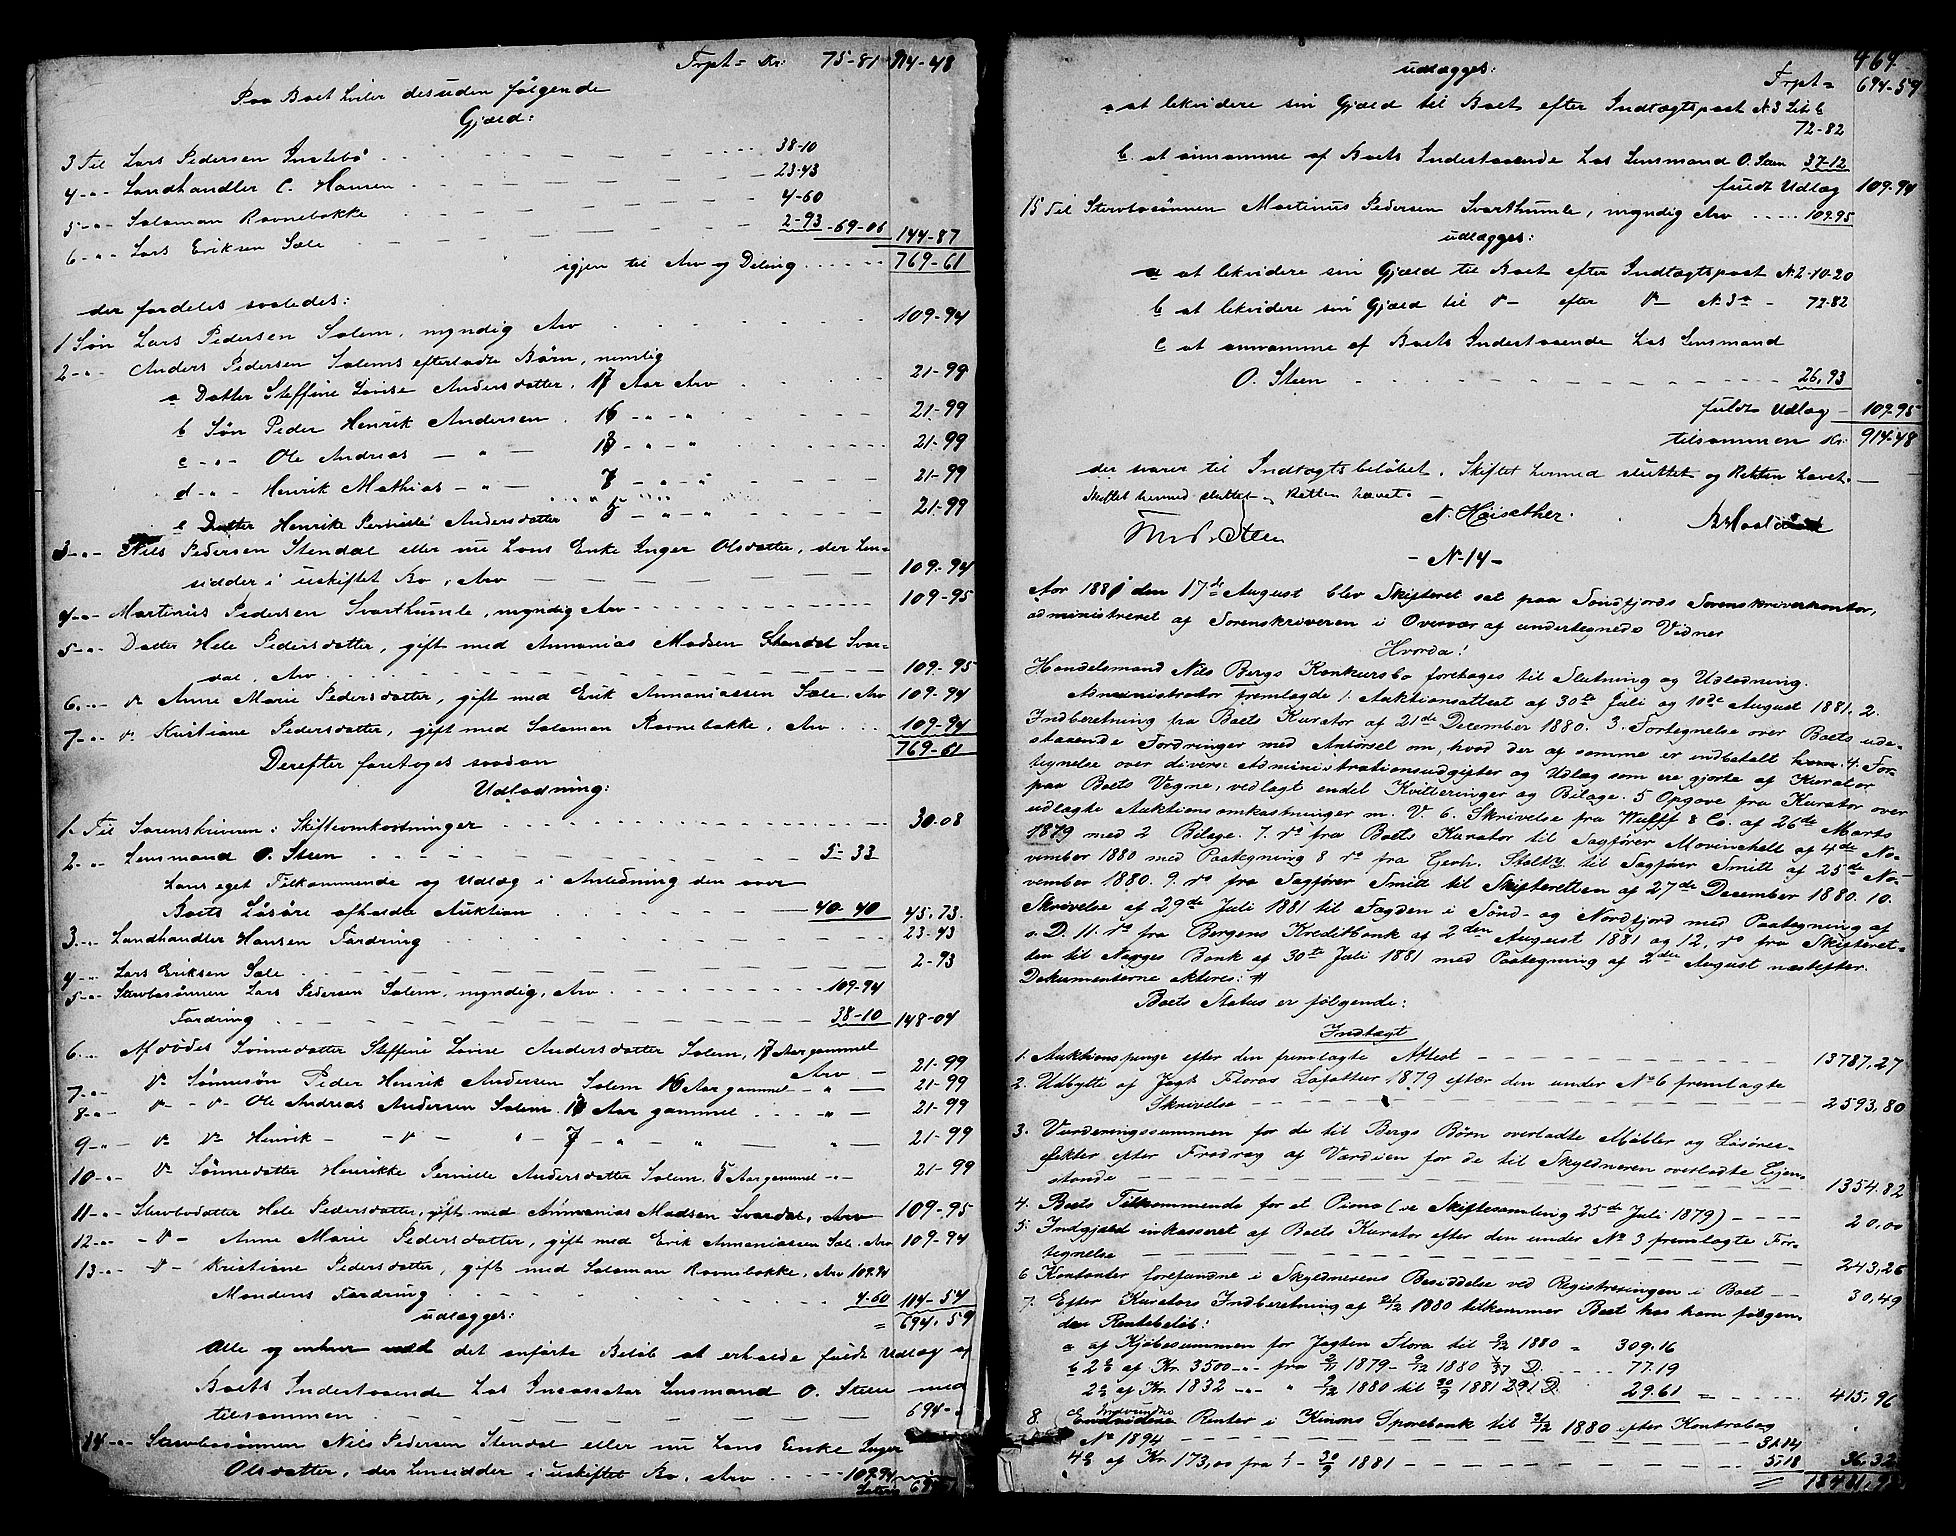 Trpt= Kr. 75-81 914-48
Paa Boet hviler desuden følgende
Gjæld:
3 Til Lars Pedersen Instebø 38-10
4 -"- Landhandler C. Hansen 23-43
5 -"- Salomon Ravnebakke 4-60
6 -"- Lars Eriksen Sæle 2-93 -69-06 144-87
igjen til Arv og Deling 769-61
der fordeles saaledes:
1 Søn Lars Pedersen Solem, myndig Arv 109-94
2 -"- Anders Pedersen Solems efterladte Børn, nemlig
a Datter Steffine Lovise Andersdatter, 17 Aar Arv 21-99
b Søn Peder Henrik Andersen. 16 -"- " 21-99
c -"- Ole Andreas — " — 13 -"- " 21-99
d -"- Henrik Mathias - " — 7 -"- " 21-99
e Datter Henrikke Pernille Andersdatter 5 -"- " 21-99
3 -"- Nils Pedersen Stendal eller nu hans Enke Inger Olsdatter, der hen-
sidder i uskiftet Bo, Arv 109-94
4 -"- Martinus Pedersen Svarthumle, myndig Arv 109-95
5 -"- Datter Hele Pedersdatter, gift med Ananias Madsen Svar-
dal, Arv 109-95
6 -"- d° Anne Marie Pedersdatter, gift med Erik Annaniassen Sæle, Arv 109-94
7 -"- d° Kristiane Pedersdatter, gift med Salomon Ravnebakke, Arv 109-94
769-61
Derefter foretoges saadan
Udlodning:
1- Til Sorenskriveren i Skifteomkostninger 30-08
2 -"- Lensmand O. Steen 5-33
hans eget Tilkommende og Udlæg i Anledning den over
Boets Løsøre afholdte Auktion 40-40 45,73
3 -"- Landhandler Hansen Fordring 23-43
4 -"- Lars Eriksen Sæle 2-93
5 -"- Stervbosønnen Lars Pedersen Solem, myndig, Arv 109-94
Fordring 38-10 148-04
6 -"- Afdødes Sønnedatter Steffine Lovise Andersdatter Solem, 17 Aar gammel
Arv - 21-99
7 -"- d° Sønnesøn Peder Henrik Andersen Solem 16 Aar gammel - " — 21-99
8 -"- d° - d° - Ole Andreas Andersen Solem. 13 Aar gammel - " — 21-99
9 -"- d° d° Henrik - - d° - " - 7 - " - " — " — 21-99
10 -"- d° Sønnedatter Henrikke Pernille Andersdatter Solem, 5 Aar gammel -"- 21-99
11 -"- Stervbodatter Hele Pedersdatter, gift med Annanias Madsen Svardal, Arv 109-95
12 -"- - d° - Anne Marie Pedersdatter, gift med Erik Annaniassen Sæle. Arv 109-94
13 -"- d° - Kristiane Pedersdatter, gift med Salomon Ravnebakke, Arv 109.94
Mandens Fordring 4-60 114-54
udlægges: = 694,59
Alle og enhver ved det anførte Beløb at erholde fuldt Udlæg af
Boets Indestaaende hos Incassator Lensmand O. Steen med
tilsammen 694-
14 -"- Stervbosønnen Nils Pedersen Stendal eller nu hans Enke Inger
Olsdatter, der hensidder i uskiftet Bo, Arv 109-94
464
udlægges: Trpt= 694-59
a at likvidere sin Gjæld til Boet efter Indtægtspost N.3 Lit b
72-82
b. at annamme af Boets Indestaaende hos Lensmand O. Steen 37-12
fuldt Udlæg 109-94
15 Til Stervbosønnen Martinus Pedersen Svarthumle, myndig Arv 109.95
udlægges:
a at likvidere sin Gjæld til Boet efter Indtægtspost N.2-10-20
b at likvidere sin Gjæld til d° — efter d° — N.3a - 72-82
c at annamme af Boets Indestaaende hos Lensmand
O. Steen 26,93
fuldt Udlæg - 109-95
tilsammen Kr. 914-48
der svarer til Indtægtsbeløbet. Skiftet hermed sluttet og Retten hævet.
Skiftet hermed sluttet og Retten hævet.
N. Høisether.
— N-14 —
Aar 1881 den 17de August blev Skifteret sat paa Søndfjords Sorenskriverkontor,
administreret af Sorenskriveren i Overvær af undertegnede Vidner
Hvorda!
Handelsmand Nils Bergs Konkursbo foretoges til Slutning og Udlodning.
Administrator fremlagde 1. Auktionsattest af 30te Juli og 10de August 1881. 2.
Indberetning fra Boets Kurator af 21de December 1880. 3. Fortegnelse over Boets ude-
staaende Fordringer med Antørsel om, hvad der af samme er indbetalt. 4. For-
tegnelse over diverse Administrationsudgifter og Udlæg som ere gjorte af Kurator
paa Boets Vegne, vedlagt endel Kvitteringer og Bilage. 5 Opgave fra Kurator over
udlagte Auktionsomkostninger m. V. 6. Skrivelse fra Wulff & Co. af 26de Marts
1879 med 2 Bilage. 7. d° fra Boets Kurator til Sagfører Movinckell af 4de No-
vember 1880 med Paategning 8 d° fra Gerh. Stoltz til Sagfører Smitt af 25de No-
vember 1880. 9. d° fra Sagfører Smitt til Skifteretten af 27de December 1880. 10.
Skrivelse af 29de Juli 1881 til Fogden i Sønd- og Nordfjord med Paategning af
s. D. 11. d° fra Bergens Kreditbank af 2den August 1881 og 12. d° fra Skifteret-
ten til Norges Bank af 30te Juli 1881 med Paategning af 2den August næstefter.
Dokumenterne akteres:
Boets Status er følgende:
Indtægt
1. Auktionspenge efter den fremlagte Attest 13787,27
2. Udbytte af Jagt Floras Lofottur 1879 efter den under No 6 fremlagte
Skrivelse 2593,80
3. Vurderingssummen for de til Bergs Børn overladte Møbler og Løsøreef-
fekter efter Fradrag af Værdien for de til Skyldneren overladte Gjen-
stande 1354.82
4. Boets Tilkommende for et Piano (se Skiftesamling 25de Juli 1879) 20,00
5. Indgjæld inkasseret af Boets Kurator efter den under No 3 fremlagte For-
tegnelse 243,26
6 Kontanter forefundne i Skyldnerens Besiddelse ved Registreringen i Boet 30,49
7. Efter Kurators Indberetning af 21/12 1880 tilkommer Boet hos ham følgen-
den Rentebeløb:
a af Kjøbesummen for Jagten Flora til 9/12 1880 = 309.16
b 2% af Kr. 3500 -"- fra 2/11 1879 - 9/12 1880 77.19
2% af Kr. 1832 -"- " 9/12 1880 til 30/9 1881 291 D. 29.61 = 415,96
8. Indvundne Renter i Kinns Sparebank til 31/12 1880 efter Kontrabog
No 1894 31.14
4% af Kr. 173,00 fra 1/1 - 30/9 1881 5.18 36,32